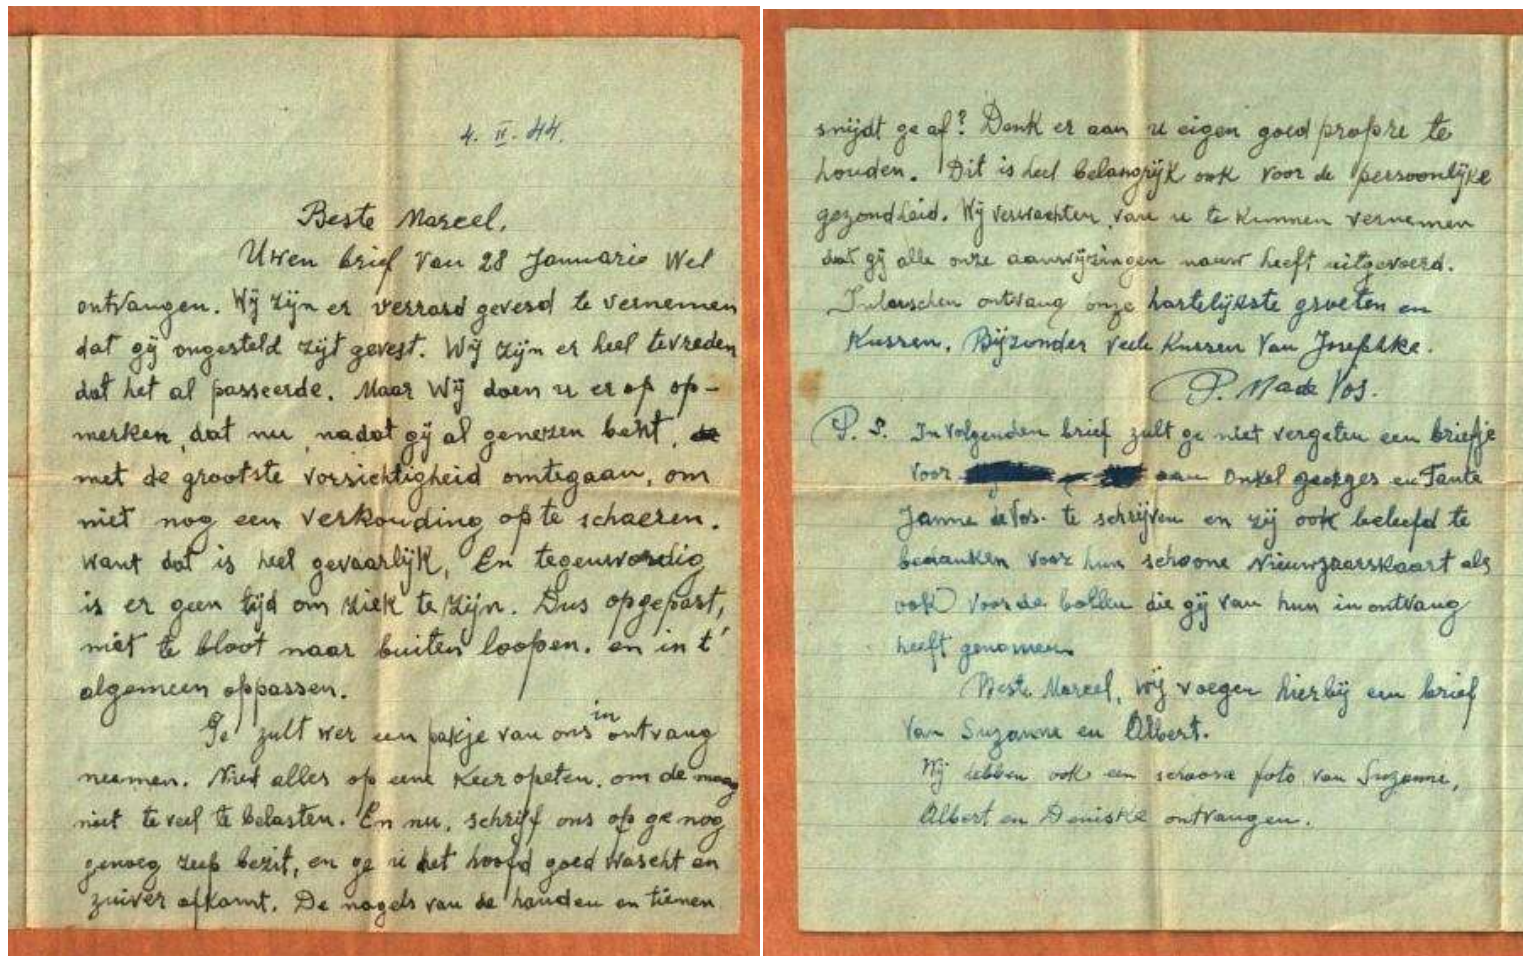 4. II. 44.
Beste Marcel,
Uwen brief van 28 Januarie Wel
ontvangen. Wij zijn er verrasd geversd te vernemen
dat gij ongesteld zijt gevest. Wij zijn er heel tevreden
dat het al passeerde. Maar Wij doen u er op op-
merken, dat nu, nadat gij al genezen bent,
met de grootste vorsichtigheid omtegaan, om
niet nog een verkouding opte schaeren.
want dat is heel gevaarlijk, En tegenwordig
is er geen tijd om ziek te zijn. Dus opgepast,
niet te bloot naar buiten loopen. en in t'
algemeen oppassen.
Je zult wer een pakje van ons in ontvang
neemen. Niet alles op eene Keer opeten. om de maag
niet te veel te belasten. En nu, schrijf ons of ge nog
genoeg zeep bezit, en ge u het hoofd goed wascht en
zuiver afkamt. De nagels van de handen en tienen
snijdt ge af? Denk er aan u eigen goed propre te
houden. Dit is heel belangrijk ook voor de persoonlijke
gezondheid. Wij verwachten van u te kunnen vernemen
dat gij alle onze aanwijzingen nauw heeft uitgevoerd.
Intusschen ontvang onze hartelijkste groeten en
Kussen. Bijzonder veele Kussen Van Josefske.
P. Ma de Vos.
P. S. In volgenden brief zult ge niet vergeten een briefje
voor aan Onkel georges en Tante
Janne de Vos. te schrijven en zij ook beleefd te
bedanken voor hun schoone Nieuwjaarskaart als
ook voor de bollen die gij van hun in ontvang
heeft genomen.
Beste Marcel, Wij voegen hierbij een brief
Van Suzanne en Albert.
Wij hebben ook een schoone foto van Suzanne,
Albert en Deniske ontvangen.